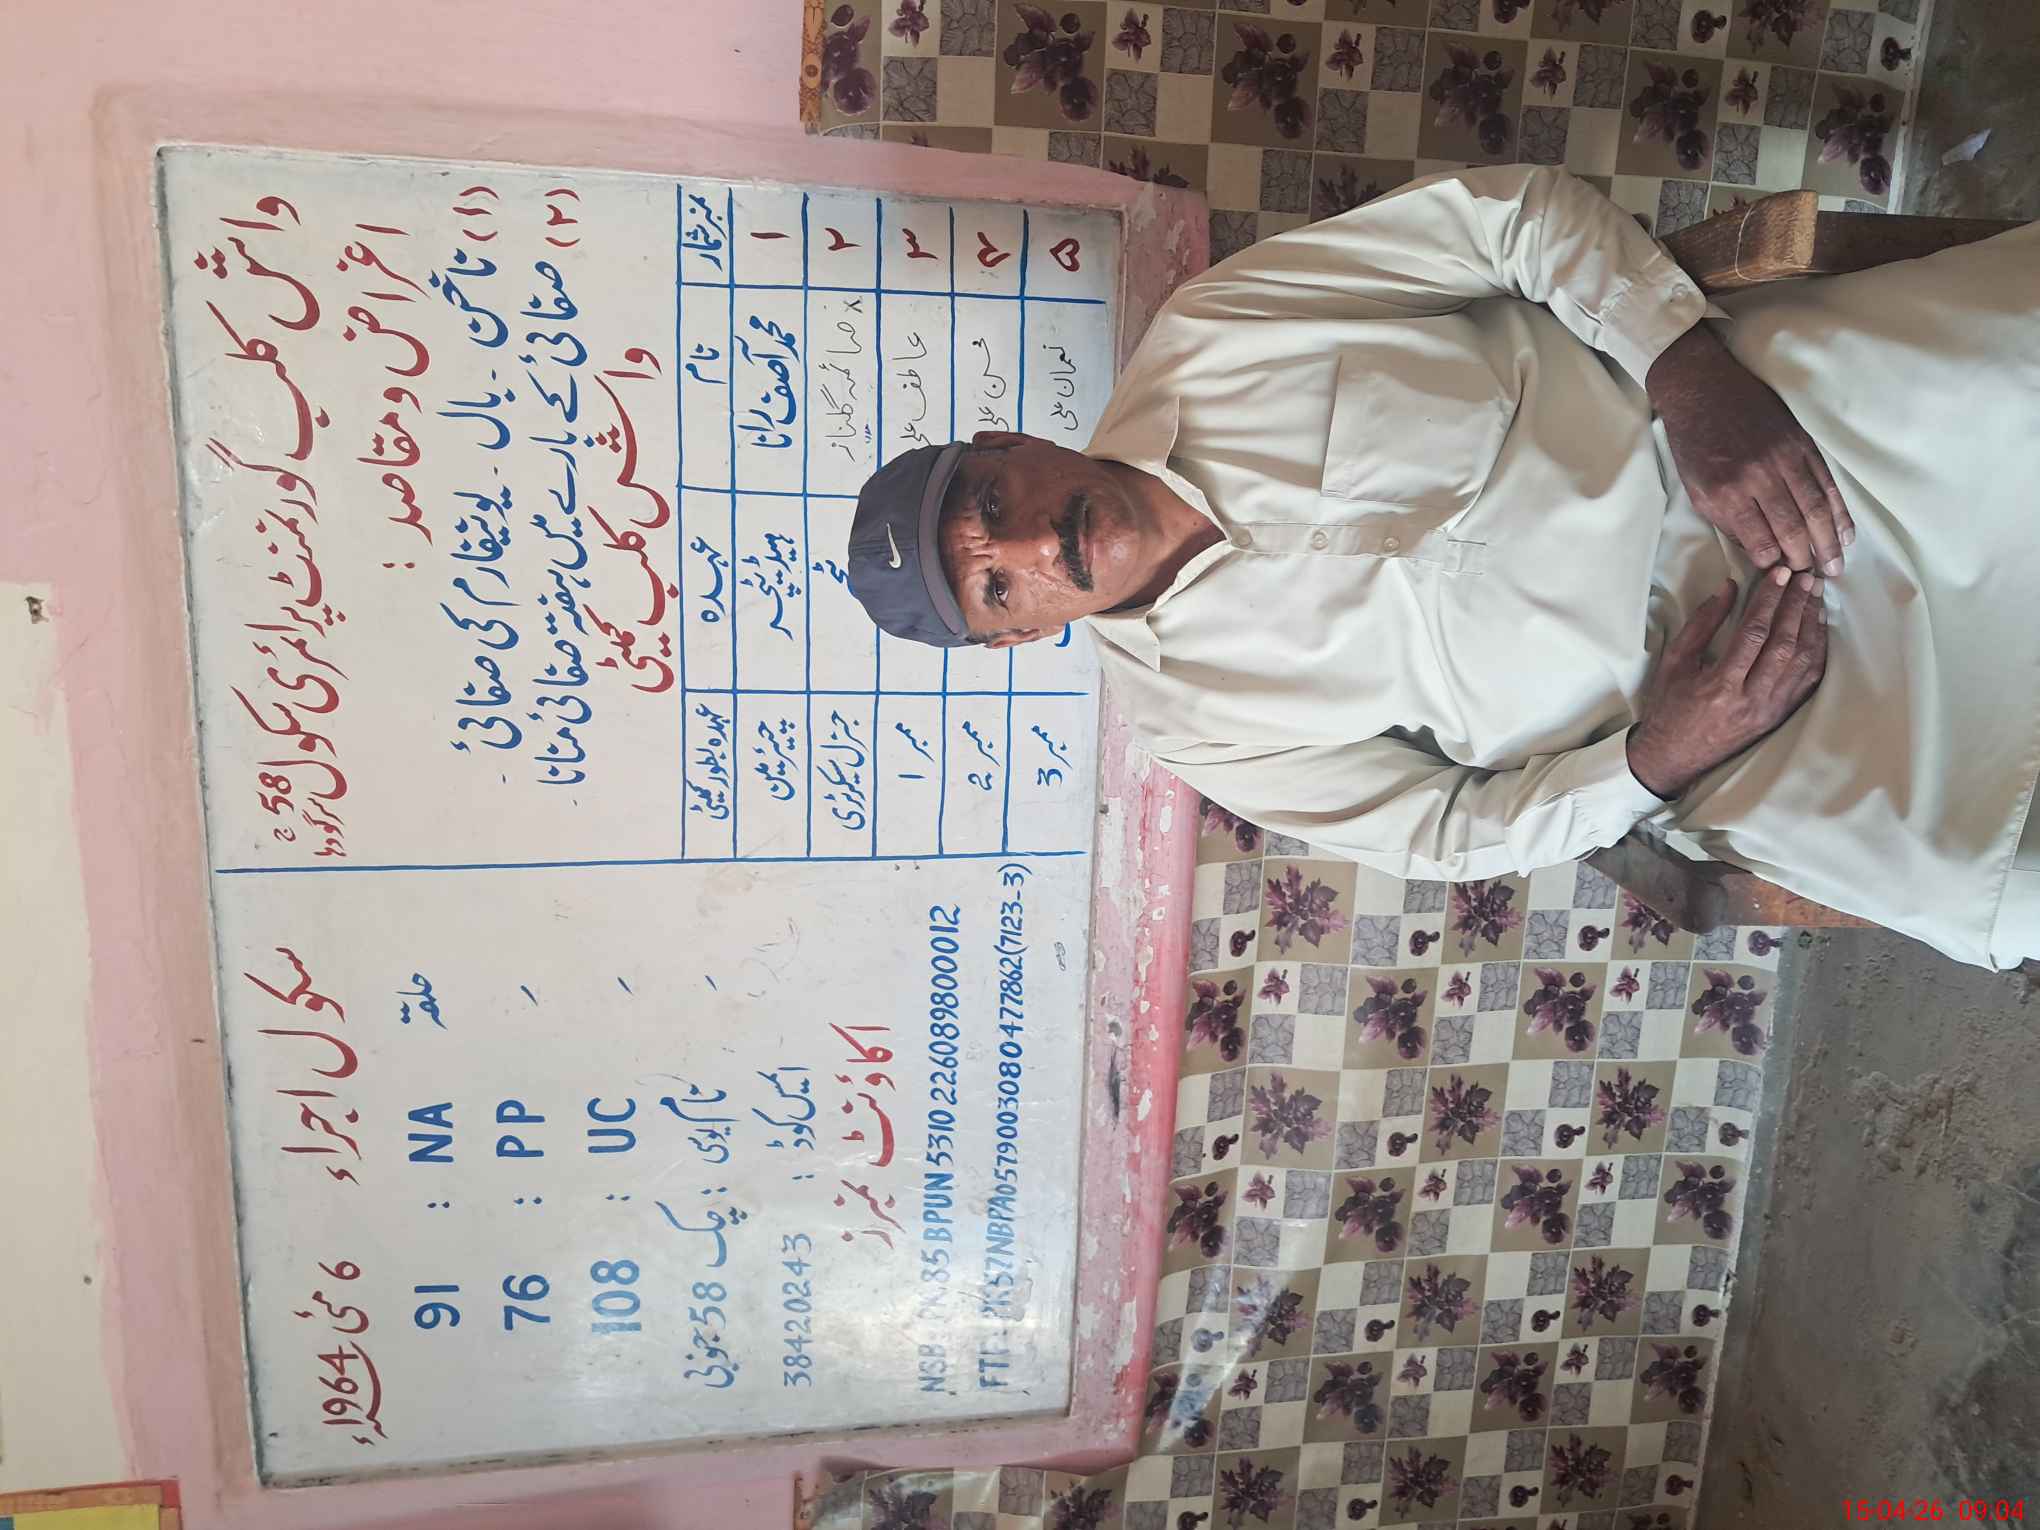 واش کلب گورنمنٹ پرائمری سکول 58 ج سرگودہا
اغراض و مقاصد :
(۱) ناخن ۔ بال ۔ یونیفارم کی صفائی ۔
(۲) صفائی کے بارے میں ہفتہ صفائی منانا ۔
واش کلب کمیٹی
نمبر شمار نام عہدہ عہدہ بطور کمیٹی
۱ محمد آصف رانا ہیڈ ٹیچر چیئرمین
۲ صائمہ گلناز جنرل سیکرٹری
۳ عاطف علی ممبر 1
۴ محسن علی ممبر 2
۵ نعمان علی ممبر 3
سکول اجراء 6 مئی 1964ء
حلقہ NA : 91
〃 PP : 76
〃 UC : 108
〃 نام یوسی : چک 58 جنوبی
ایمس کوڈ : 38420243
اکاؤنٹ نمبرز
NSB 85 BPUN 5310 2260898000012
57NBPA0579003080477862(7123-3)
15-04-26 09:04